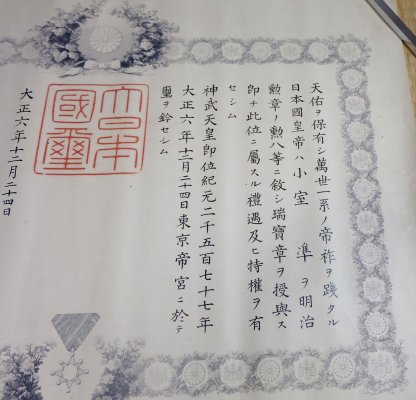 天佑ヲ保有シ萬世一系ノ帝祚ヲ踐タル
日本國皇帝ハ小室準ヲ明治
勲章ノ勲八等ニ敍シ瑞寶章ヲ授與ス
卽チ此位ニ屬スル禮遇及ヒ特權ヲ有
セシム
神武天皇卽位紀元二千五百七十七年
大正六年十二月二十四日東京帝宮ニ於テ
璽ヲ鈐セシム
大日本國璽
大正六年十二月二十四日